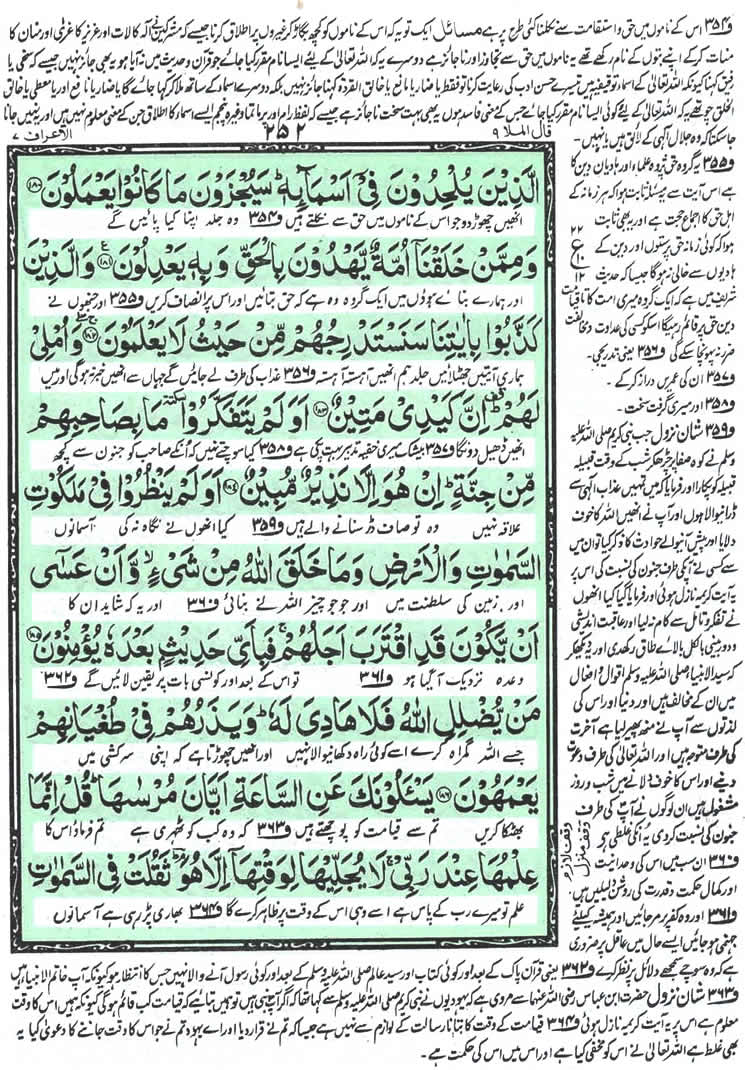 و۳۵۴ اس کے ناموں میں حق و استقامت سے نکلنا کئی طرح پر ہے مسائل ایک تو یہ کہ اس کے ناموں کو کچھ بگاڑ کر غیروں پر اطلاق کرنا جیسے کہ مشرکین نے الٰہ کا لات اور عزیز کا عزی اور منان کا
منات کرکے اپنے بتوں کے نام رکھے تھے یہ ناموں میں حق سے تجاوز اور ناجائز ہے دوسرے یہ کہ اللہ تعالیٰ کے لئے ایسا نام مقرر کیا جائے جو قرآن و حدیث میں نہ آیا ہو یہ بھی جائز نہیں جیسے کہ سخی یا
رفیق کہنا کیونکہ اللہ تعالیٰ کے اسماء توقیفیہ ہیں تیسرے حسن ادب کی رعایت کرنا تو فقط یا ضار یا مانع یا خالق القردۃ کہنا جائز نہیں بلکہ دوسرے اسماء کے ساتھ ملا کر کہا جائے گا یا ضار یا نافع اور یا معطی یا خالق
الخلق چوتھے یہ کہ اللہ تعالیٰ کے لئے کوئی ایسا نام مقرر کیا جائے جس کے معنی فاسد ہوں یہ بھی بہت سخت ناجائز ہے جیسے کہ لفظ رام اور پرماتما وغیرہ پنجم ایسے اسماء کا اطلاق جن کے معنی معلوم نہیں ہیں اور یہ نہیں جانا
جا سکتا کہ وہ جلال الٰہی کے لائق ہیں یا نہیں۔
قال الملا ۹
۲۵۲
الاعراف ۷
الَّذِيْنَ يُلْحِدُوْنَ فِيْٓ اَسْمَآىِٕهٖ ؕ سَيُجْزَوْنَ مَا كَانُوْا يَعْمَلُوْنَ ۱۸۰
انھیں چھوڑ دو جو اس کے ناموں میں حق سے نکلتے ہیں و۳۵۴ وہ جلد اپنا کیا پائیں گے
وَمِمَّنْ خَلَقْنَآ اُمَّةٌ يَّهْدُوْنَ بِالْحَقِّ وَبِهٖ يَعْدِلُوْنَ ۱۸۱ وَالَّذِيْنَ
اور ہمارے بنائے ہوؤں میں ایک گروہ وہ ہے کہ حق بتائیں اور اس پر انصاف کریں و۳۵۵ اور جنھوں نے
كَذَّبُوْا بِاٰيٰتِنَا سَنَسْتَدْرِجُهُمْ مِّنْ حَيْثُ لَا يَعْلَمُوْنَ ۱۸۲ وَاُمْلِيْ
ہماری آیتیں جھٹلائیں جلد ہم انھیں آہستہ آہستہ و۳۵۶ عذاب کی طرف لے جائیں گے جہاں سے انھیں خبر نہ ہوگی اور میں
لَهُمْ ؕ اِنَّ كَيْدِيْ مَتِيْنٌ ۱۸۳ اَوَلَمْ يَتَفَكَّرُوْا ٚ مَا بِصَاحِبِهِمْ
انھیں ڈھیل دوں گا و۳۵۷ بیشک میری خفیہ تدبیر بہت پکی ہے و۳۵۸ کیا سوچتے نہیں کہ ان کے صاحب کو جنون سے کچھ
مِّنْ جِنَّةٍ ؕ اِنْ هُوَ اِلَّا نَذِيْرٌ مُّبِيْنٌ ۱۸۴ اَوَلَمْ يَنْظُرُوْا فِيْ مَلَكُوْتِ
علاقہ نہیں وہ تو صاف ڈر سنانے والے ہیں و۳۵۹ کیا انھوں نے نگاہ نہ کی آسمانوں
السَّمٰوٰتِ وَالْاَرْضِ وَمَا خَلَقَ اللّٰهُ مِنْ شَيْءٍ ۙ وَّاَنْ عَسٰٓى
اور زمین کی سلطنت میں اور جو جو چیز اللہ نے بنائی و۳۶۰ اور یہ کہ شاید ان کا
اَنْ يَّكُوْنَ قَدِ اقْتَرَبَ اَجَلُهُمْ ۚ فَبِاَيِّ حَدِيْثٍۢ بَعْدَهٗ يُؤْمِنُوْنَ ۱۸۵
وعدہ نزدیک آ گیا ہو و۳۶۱ تو اس کے بعد اور کونسی بات پر یقین لائیں گے و۳۶۲
مَنْ يُّضْلِلِ اللّٰهُ فَلَا هَادِيَ لَهٗ ؕ وَيَذَرُهُمْ فِيْ طُغْيَانِهِمْ
جسے اللہ گمراہ کرے اسے کوئی راہ دکھانیوالا نہیں اور انھیں چھوڑتا ہے کہ اپنی سرکشی میں
يَعْمَهُوْنَ ۱۸۶ يَسْـَٔلُوْنَكَ عَنِ السَّاعَةِ اَيَّانَ مُرْسٰىهَا ؕ قُلْ اِنَّمَا
بھٹکا کریں تم سے قیامت کو پوچھتے ہیں و۳۶۳ کہ وہ کب کو ٹھہری ہے تم فرماؤ اس کا
عِلْمُهَا عِنْدَ رَبِّيْ ۚ لَا يُجَلِّيْهَا لِوَقْتِهَآ اِلَّا هُوَ ؕ ثَقُلَتْ فِي السَّمٰوٰتِ
علم تو میرے رب کے پاس ہے اسے وہی اس کے وقت پر ظاہر کرے گا و۳۶۴ بھاری پڑ رہی ہے آسمانوں
و۳۵۵ یہ گروہ حق پژوہ علماء اور ہادیان دین کا ہے
اس آیت سے یہ مسئلہ ثابت ہوا کہ ہر زمانہ کے
اہل حق کا اجماع حجت ہے اور یہ بھی ثابت
ہوا کہ کوئی زمانہ حق پرستوں اور دین کے
ہادیوں سے خالی نہ ہوگا جیسا کہ حدیث
شریف میں ہے کہ ایک گروہ میری امت کا تا قیامت
دین حق پر قائم رہیگا اسکو کسی کی عداوت و مخالفت
ضرر نہ پہونچا سکے گی و۳۵۶ یعنی تدریجی۔
و۳۵۷ ان کی عمریں دراز کر کے۔
و۳۵۸ اور میری گرفت سخت۔
و۳۵۹ شان نزول جب نبی کریم صلی اللہ علیہ
وسلم نے کوہ صفا پر چڑھ کر شب کے وقت قبیلہ
قبیلہ کو پکارا اور فرمایا کہ میں تمہیں عذاب الٰہی سے
ڈرانیوالا ہوں اور آپ نے انھیں اللہ کا خوف
دلایا اور پیش آنیوالے حوادث کا ذکر کیا تو ان میں
سے کسی نے آپ کی طرف جنون کی نسبت کی اس پر
یہ آیت کریمہ نازل ہوئی اور فرمایا گیا کیا انھوں
نے تفکر و تامل سے کام نہ لیا اور عاقبت اندیشی
و دور بینی بالکل بالائے طاق رکھدی اور یہ دیکھکر
کہ سید الانبیاء صلی اللہ علیہ وسلم اقوال و افعال
میں ان کے مخالف ہیں اور دنیا اور اس کی
لذتوں سے آپ نے منھ پھیر لیا ہے آخرت
کی طرف متوجہ ہیں اور اللہ تعالیٰ کی طرف دعوت
دینے اور اس کا خوف دلانے میں شب و روز
مشغول ہیں ان لوگوں نے آپ کی طرف
جنون کی نسبت کردی یہ انکی غلطی ہو
و۳۶۰ ان سب میں اس کی وحدانیت
اور کمال حکمت و قدرت کی روشن دلیلیں ہیں
و۳۶۱ اور وہ کفر پر مر جائیں اور ہمیشہ کیلئے
جہنمی ہو جائیں ایسے حال میں عاقل پر ضروری
ہے کہ وہ سوچے سمجھے دلائل پر نظر کرے و۳۶۲ یعنی قرآن پاک کے بعد اور کوئی کتاب اور سید عالم صلی اللہ علیہ وسلم کے بعد اور کوئی رسول آنے والا نہیں جس کا انتظار ہو کیونکہ آپ خاتم الانبیاء ہیں
و۳۶۳ شان نزول حضرت ابن عباس رضی اللہ عنہما سے مروی ہے کہ یہودیوں نے نبی کریم صلی اللہ علیہ وسلم سے کہا تھا کہ اگر آپ نبی ہیں تو ہمیں بتائیے کہ قیامت کب قائم ہوگی کیونکہ ہمیں اس کا وقت
معلوم ہے اس پر یہ آیت کریمہ نازل ہوئی و۳۶۴ قیامت کے وقت کا بتانا رسالت کے لوازم سے نہیں ہے جیسا کہ تم نے قرار دیا اور اے یہود تم نے جو اس کا وقت جاننے کا دعویٰ کیا یہ
بھی غلط ہے اللہ تعالیٰ نے اس کو مخفی کیا ہے اور اس میں اس کی حکمت ہے۔